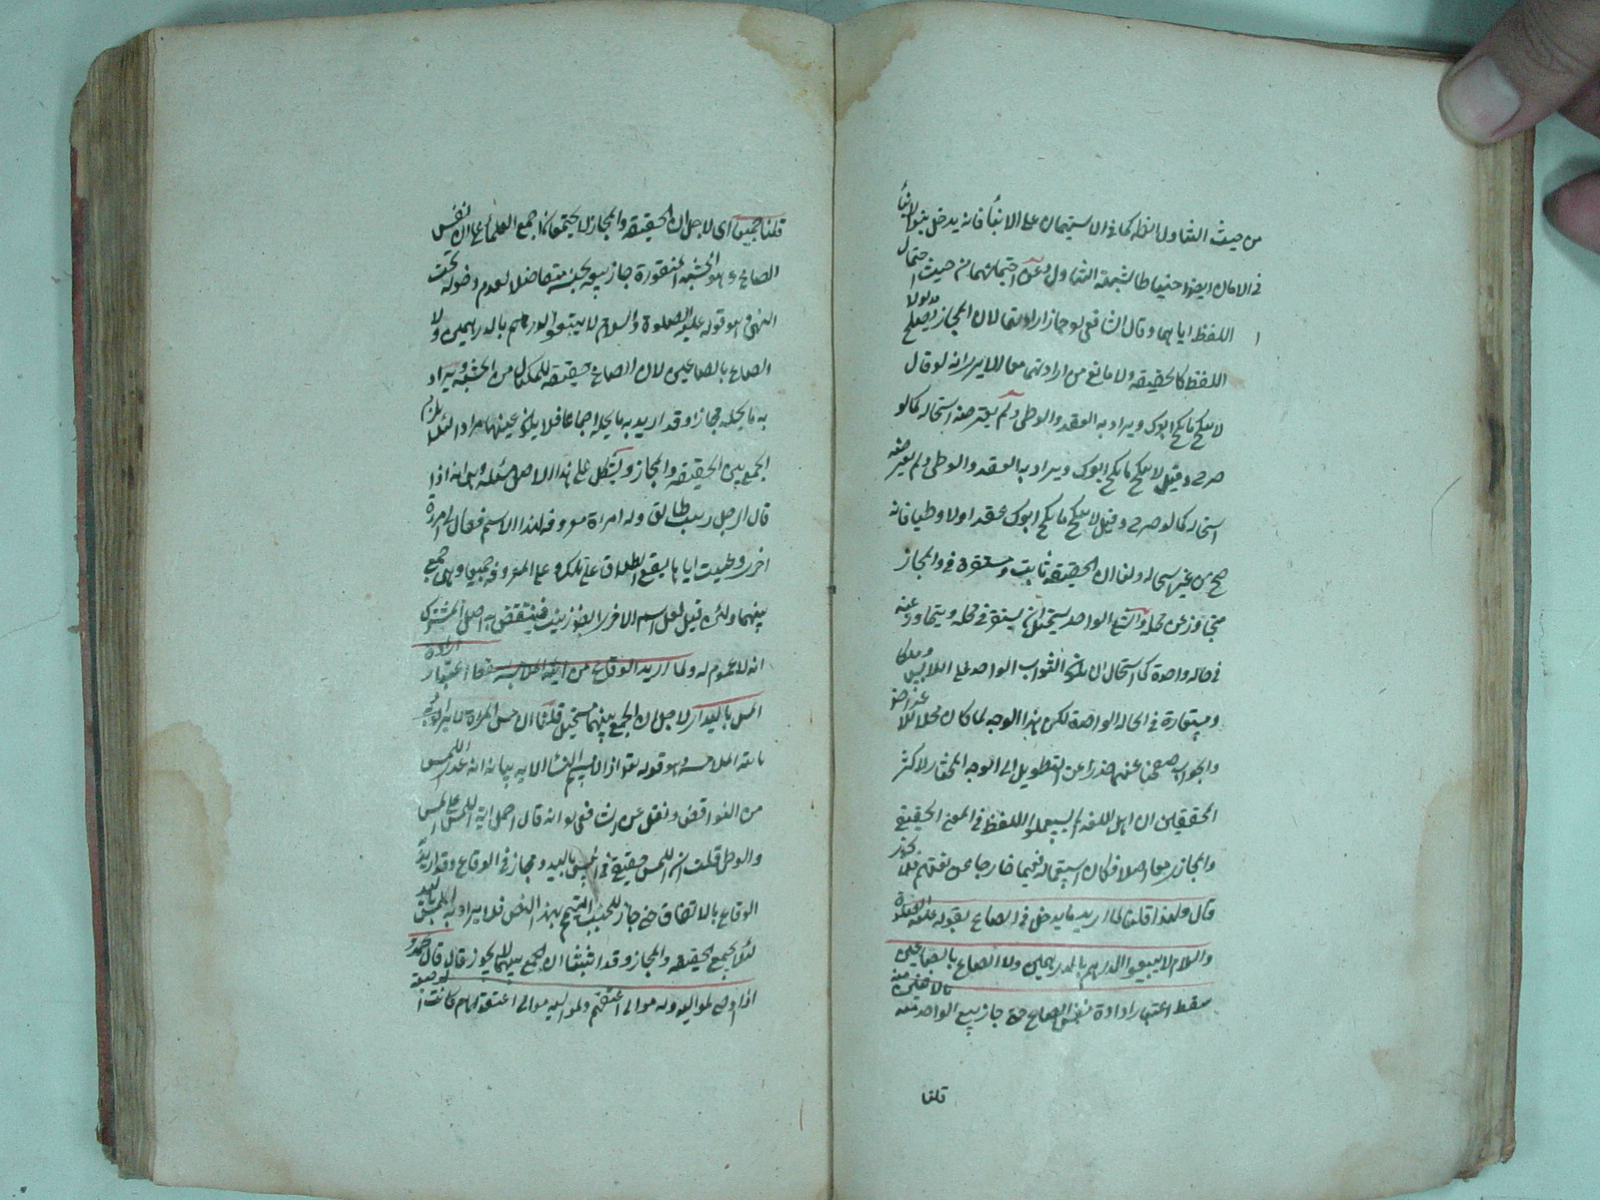 من حيث التناول ظاهرا كما في الاستيمان على الابناء فانه يدخل بنو الابناء
في الامان ايضا احتياطا لشبهة التناول وعن احتمالهما من حيث احتمال
اللفظ اياهما وقال الشافعي يجوز ارادتهما لان المجاز مدلولا يصلح
اللفظ كالحقيقة ولا مانع من ارادتهما معا الا يرى انه لو قال
لا تنكح ما نكح ابوك ويراد به العقد والوطي ولم يعترضه استحالة كما لو
صرح وقيل لا تنكح ما نكح ابوك ويراد به العقد والوطي ولم يعترضه
استحالة كما لو صرح وقيل لا تنكح ما نكح ابوك عقدا ولا وطيا فانه
صح من غير استحالة ولنا ان الحقيقة ثابت ومستقرة في والمجاز
متجاوز عن محله والشئ الواحد يستحيل ان يستقر في محله ويتجاوز عنه
في حالة واحدة كما استحال ان يكون الثوب الواحد على اللابس ملكا
وعارية في الحالة الواحدة لكن هذا الوجه لما كان محلا للاعتراض
والجواب صفحنا عنه حذرا عن التطويل الى الوجه المختار لاكثر
المحققين ان اهل اللغة لم يستعملوا اللفظ في المعنى الحقيقي
والمجازي معا اصلا فكان استعماله فيهما خارجا عن لغتهم فلا يجوز
قال ولهذا قلنا لما اريد ما يدخل في الصاع بقوله عليه الصلوة
والسلام لا تبيعوا الدرهم بالدرهمين ولا الصاع بالصاعين
سقط اعتبار ارادة نفس الصاع حتى جاز بيع الواحد منه بالاثنين منه
قلنا
قلنا جميعا اى لاجل ان الحقيقة والمجاز لا يجتمعان اجمع العلماء على ان نفس
الصاع وهو الخشبة المنقورة جاز بيعه بجنسه متفاضلا لعدم دخوله تحت
النهي وهو قوله عليه الصلوة والسلام لا تبيعوا الدرهم بالدرهمين ولا
الصاع بالصاعين لان الصاع حقيقة للمكيال من الخشبة ويراد
به ما يحله مجازا وقد اريد به ما يحله اجماعا فلا يكون عينها مراد لئلا يلزم
الجمع بين الحقيقة والمجاز ويشكل على هذا الاصل مسئلة وهي انه اذا
قال الرجل زينب طالق وله امراة معروفة بهذا الاسم فقال لي امرأة
اخرى وعنيت اياها يقع الطلاق على تلك وعلى المعروفة جميعا وهي جمع
بينهما ولئن قيل لعل اسم الاخرى ايضا زينب فينتقض به اصل المشترك
انه لا عموم له ولما اريد الوقاع من اية الملامسة سقط اعتبار ارادة
المس باليد اى لاجل ان الجمع بينهما مستحيل قلنا ان مس المراة لا يراد
باية الملامسة وهو قوله تعالى او لامستم النساء الاية بيانه انه عد اللمس
من النواقض ونقل عن الشافعي انه قال احمل اية اللمس على المس
والوطى قلت ان اللمس حقيقة في المس باليد ومجاز في الوقاع وقد اريد
الوقاع بالاتفاق حتى جاز للجنب التيمم بهذا النص فلا يراد به اللمس باليد
لئلا يجمع الحقيقة والمجاز وقد اثبتنا ان الجمع بينهما لا يجوز قال قال محمد
اذا اوصى لمواليه وله موالي اعتقهم ولمواليه موالي اعتقوهم كانت الوصية